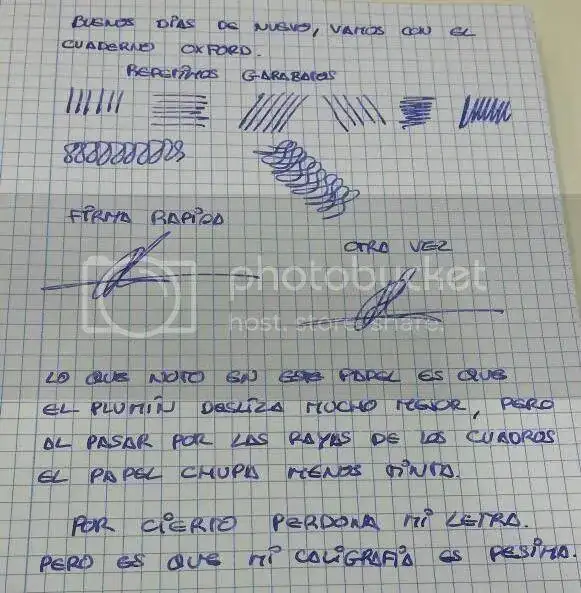 BUENOS DÍAS DE NUEVO, VAMOS CON EL
CUADERNO OXFORD.
REPETIMOS GARABATOS
FIRMA RAPIDA
OTRA VEZ
photobucket
host. store. share.
LO QUE NOTO EN ESTE PAPEL ES QUE
EL PLUMÍN DESLIZA MUCHO MEJOR, PERO
AL PASAR POR LAS RAYAS DE LOS CUADROS
EL PAPEL CHUPA MENOS TINTA.
POR CIERTO PERDONA MI LETRA.
PERO ES QUE MI CALIGRAFIA ES PESIMA.